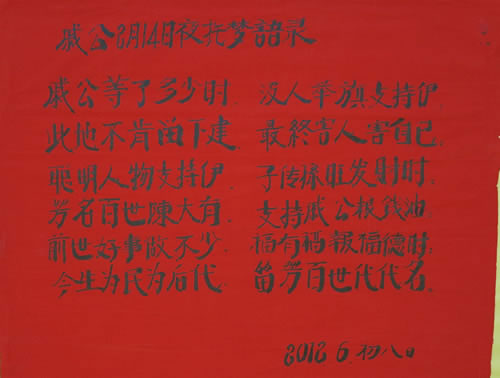 戚公8月14日夜托梦語录
戚公等了多少时. 没人举旗支持伊.
此地不肯留下建 最終害人害自己.
聪明人物支持伊. 子传孫旺发财时.
芳名百世陳大有. 支持戚公報錢油.
前世好事做不少. 福有福報福德時.
今生为民为后代. 留芳百世代代名.
2012 6.初八日